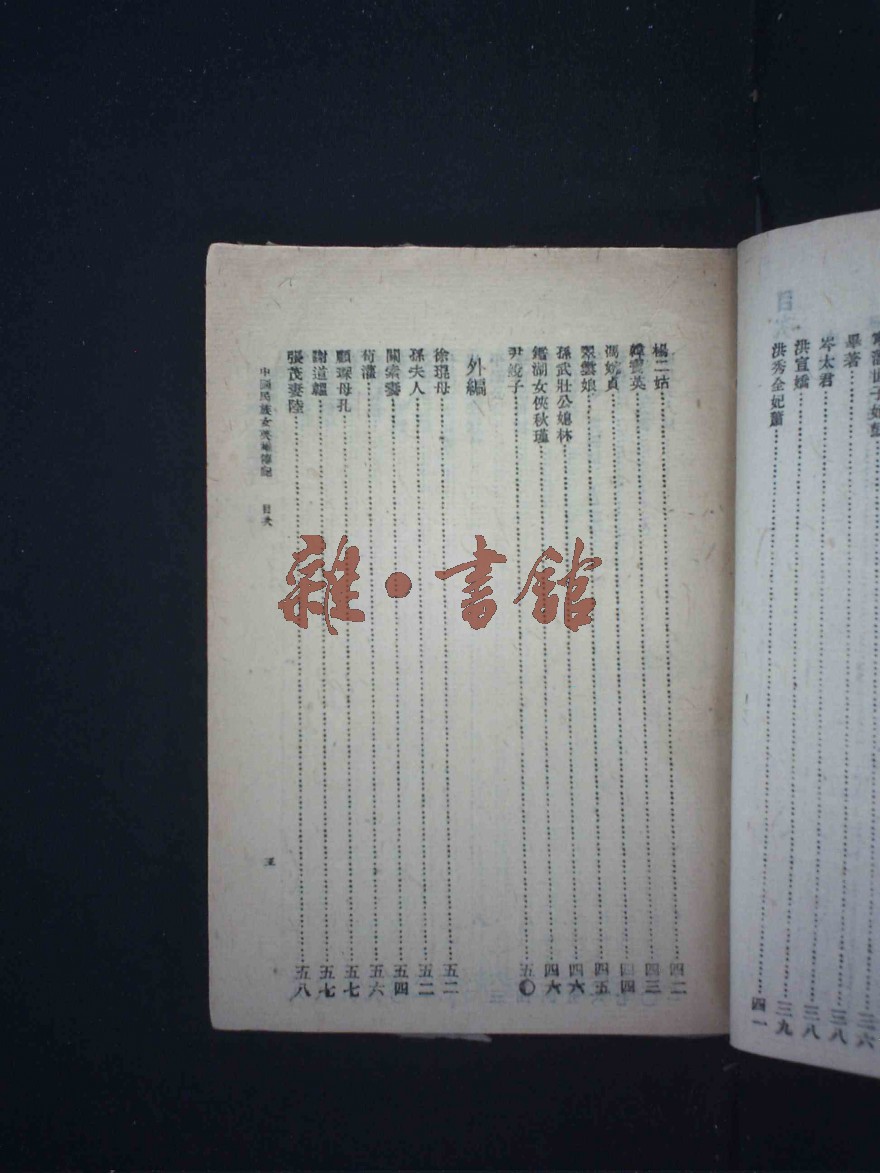 目次
畢著……三八
岑太君……三八
洪宣嬌……三九
洪秀全妃蕭……四一
楊二姑……四二
韓雲英……四三
馮婉貞……四四
翠雲娘……四五
孫武壯公媳林……四六
鑑湖女俠秋瑾……四六
尹銳子……五〇
外編
徐琨母……五二
孫夫人……五二
關索妻……五四
荀灌……五六
顧琛母孔……五七
謝道韞……五七
張茂妻陸……五八
中國民族女英雄傳記 目次
五
雜·書館